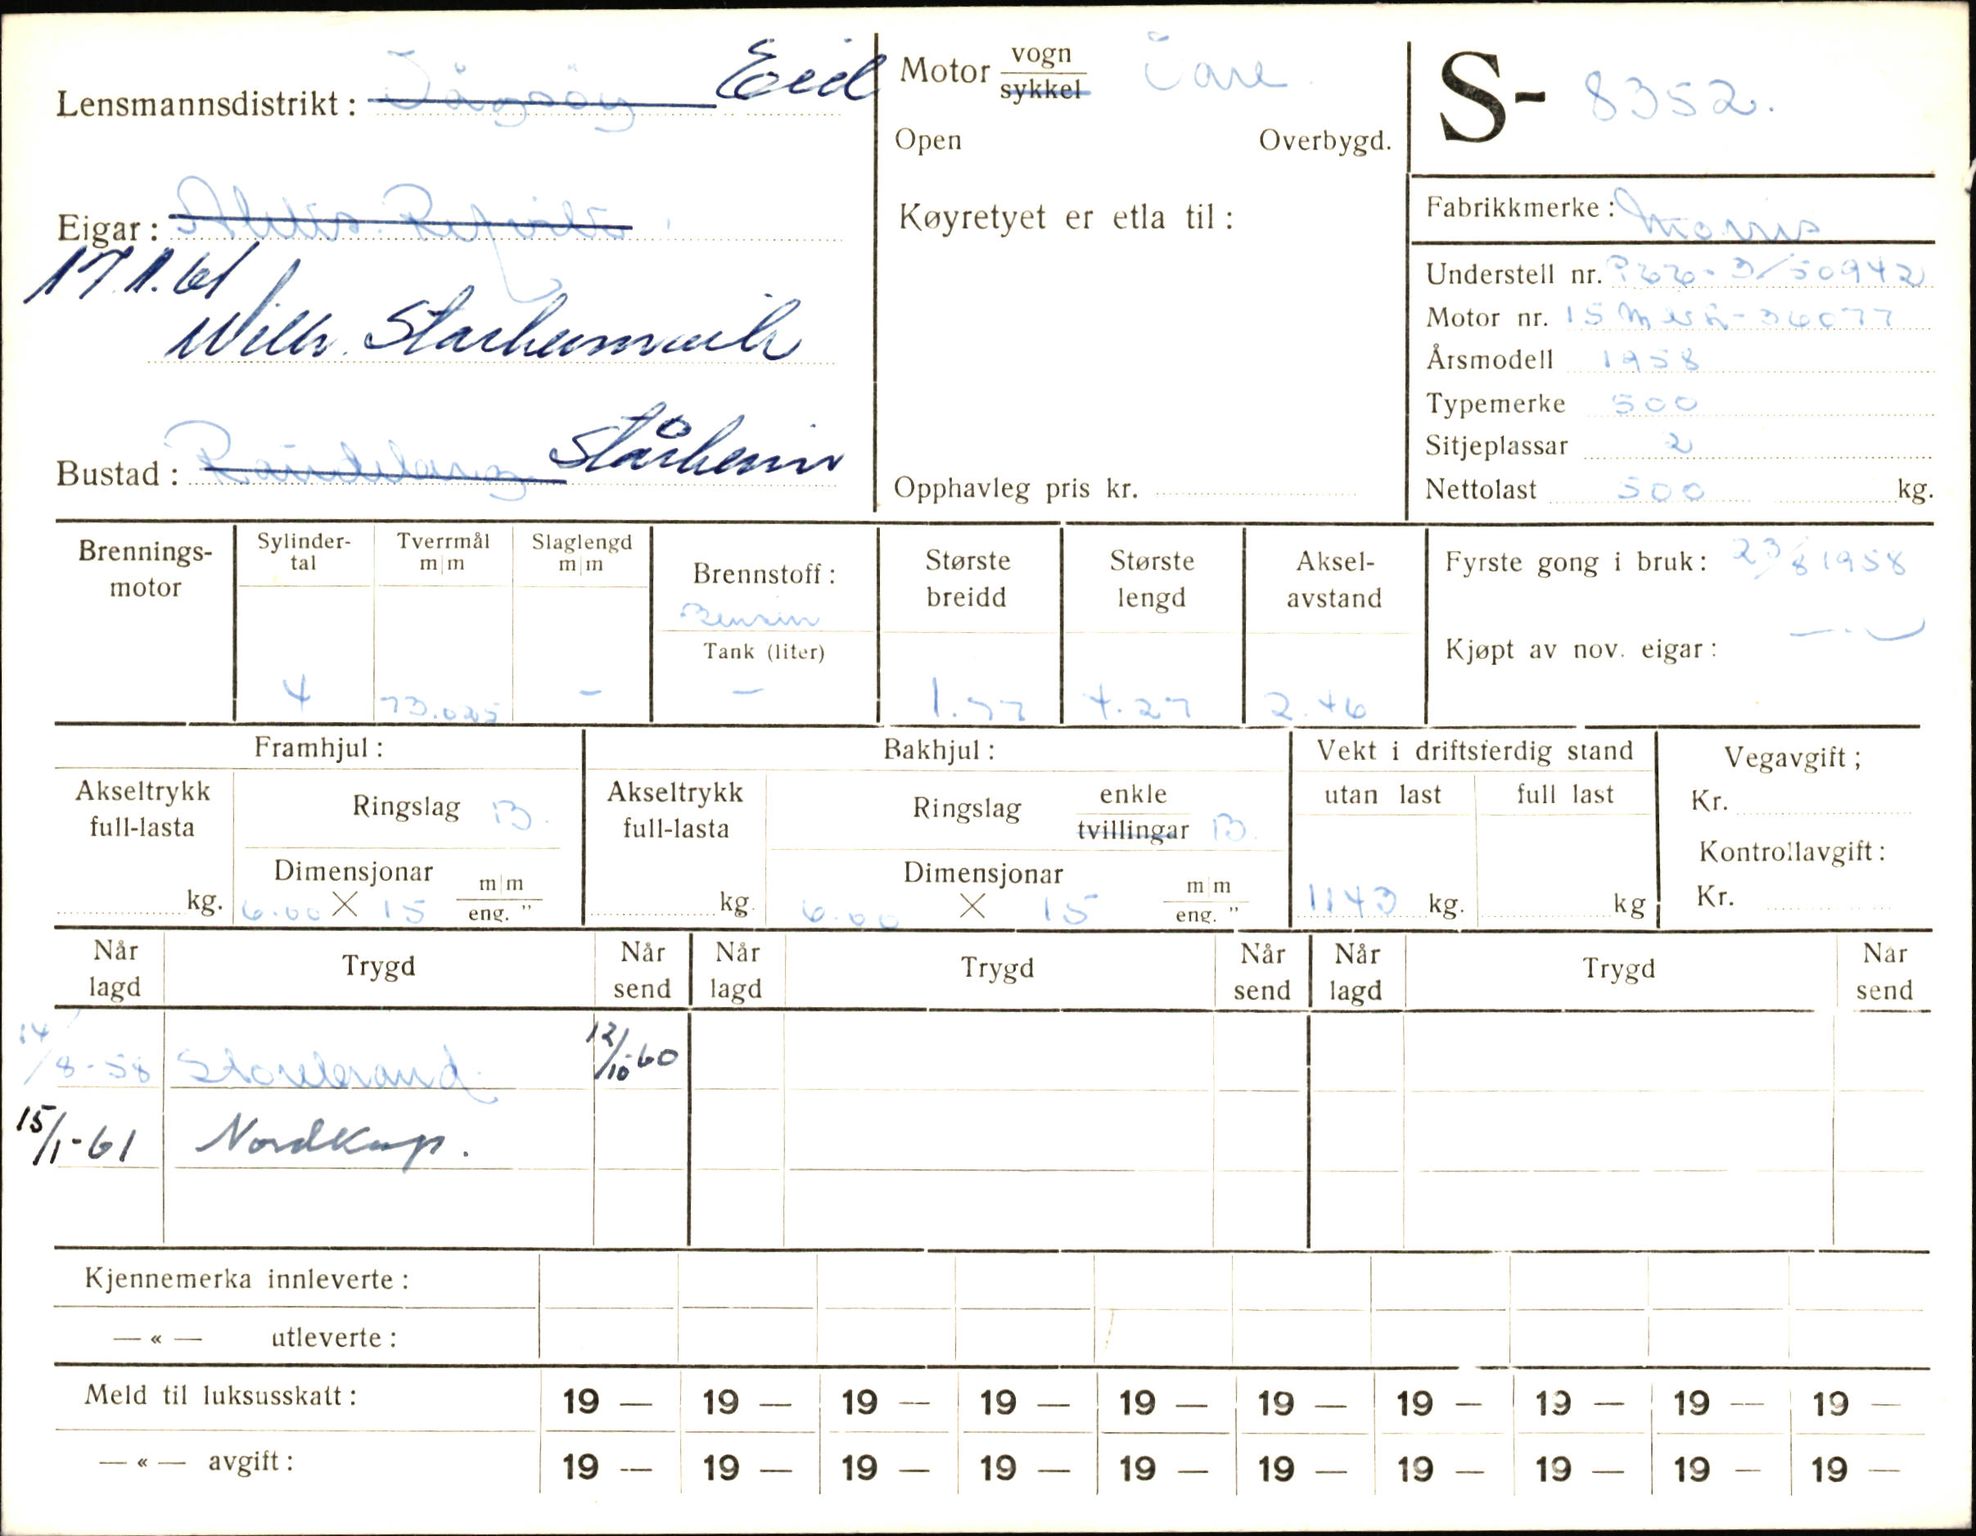 Lensmannsdistrikt: Vågsøy Eid
Eigar:
17.1.61
Wilh. Starheimvik
Bustad: Raudeberg Stårheim
Motor vogn
sykkel Vare
Open Overbygd.
Køyretyet er etla til:
Opphavleg pris kr.
S- 8352.
Fabrikkmerke: Morris
Understell nr. 3/50942
Motor nr. 36077
Årsmodell 1958
Typemerke 500
Sitjeplassar 2
Nettolast 500 kg.
Brennings-
motor
Sylinder-
tal
4
Tverrmål
m/m
73.025
Slaglengd
m/m
-
Brennstoff:
Bensin
Tank (liter)
-
Største
breidd
1.57
Største
lengd
4.27
Aksel-
avstand
2.46
Fyrste gong i bruk: 23/8 1958
Kjøpt av nov. eigar: —"—
Framhjul:
Akseltrykk
full-lasta
kg.
Ringslag B.
Dimensjonar m/m
6.00 × 15 eng. "
Bakhjul:
Akseltrykk
full-lasta
kg.
Ringslag enkle
tvillingar B.
Dimensjonar m/m
6.00 × 15 eng. "
Vekt i driftsferdig stand
utan last full last
1143 kg. kg
Vegavgift;
Kr.
Kontrollavgift:
Kr.
Når
lagd Trygd Når
send Når
lagd Trygd Når
send Når
lagd Trygd Nar
send
14/8-58 Storebrand. 12/10-60
15/1-61 Nordkap.
Kjennemerka innleverte:
— « — utleverte:
Meld til luksusskatt: 19 — 19 — 19 — 19 — 19 — 19 — 19 — 19 — 19 — 19 —
— « — avgift: 19 — 19 — 19 — 19 — 19 — 19 — 19 — 19 — 19 — 19 —